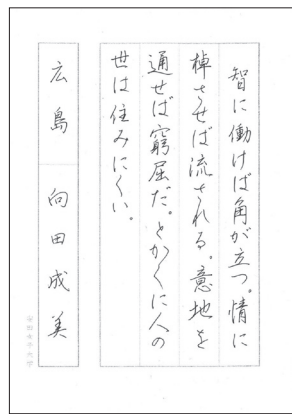 智に働けば角が立つ。情に
棹させば流される。意地を
通せば窮屈だ。とかくに人の
世は住みにくい。
広島 向田成美